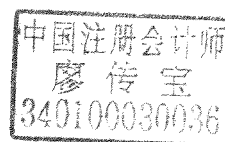 中国注册会计师
廖传宝
340100030036